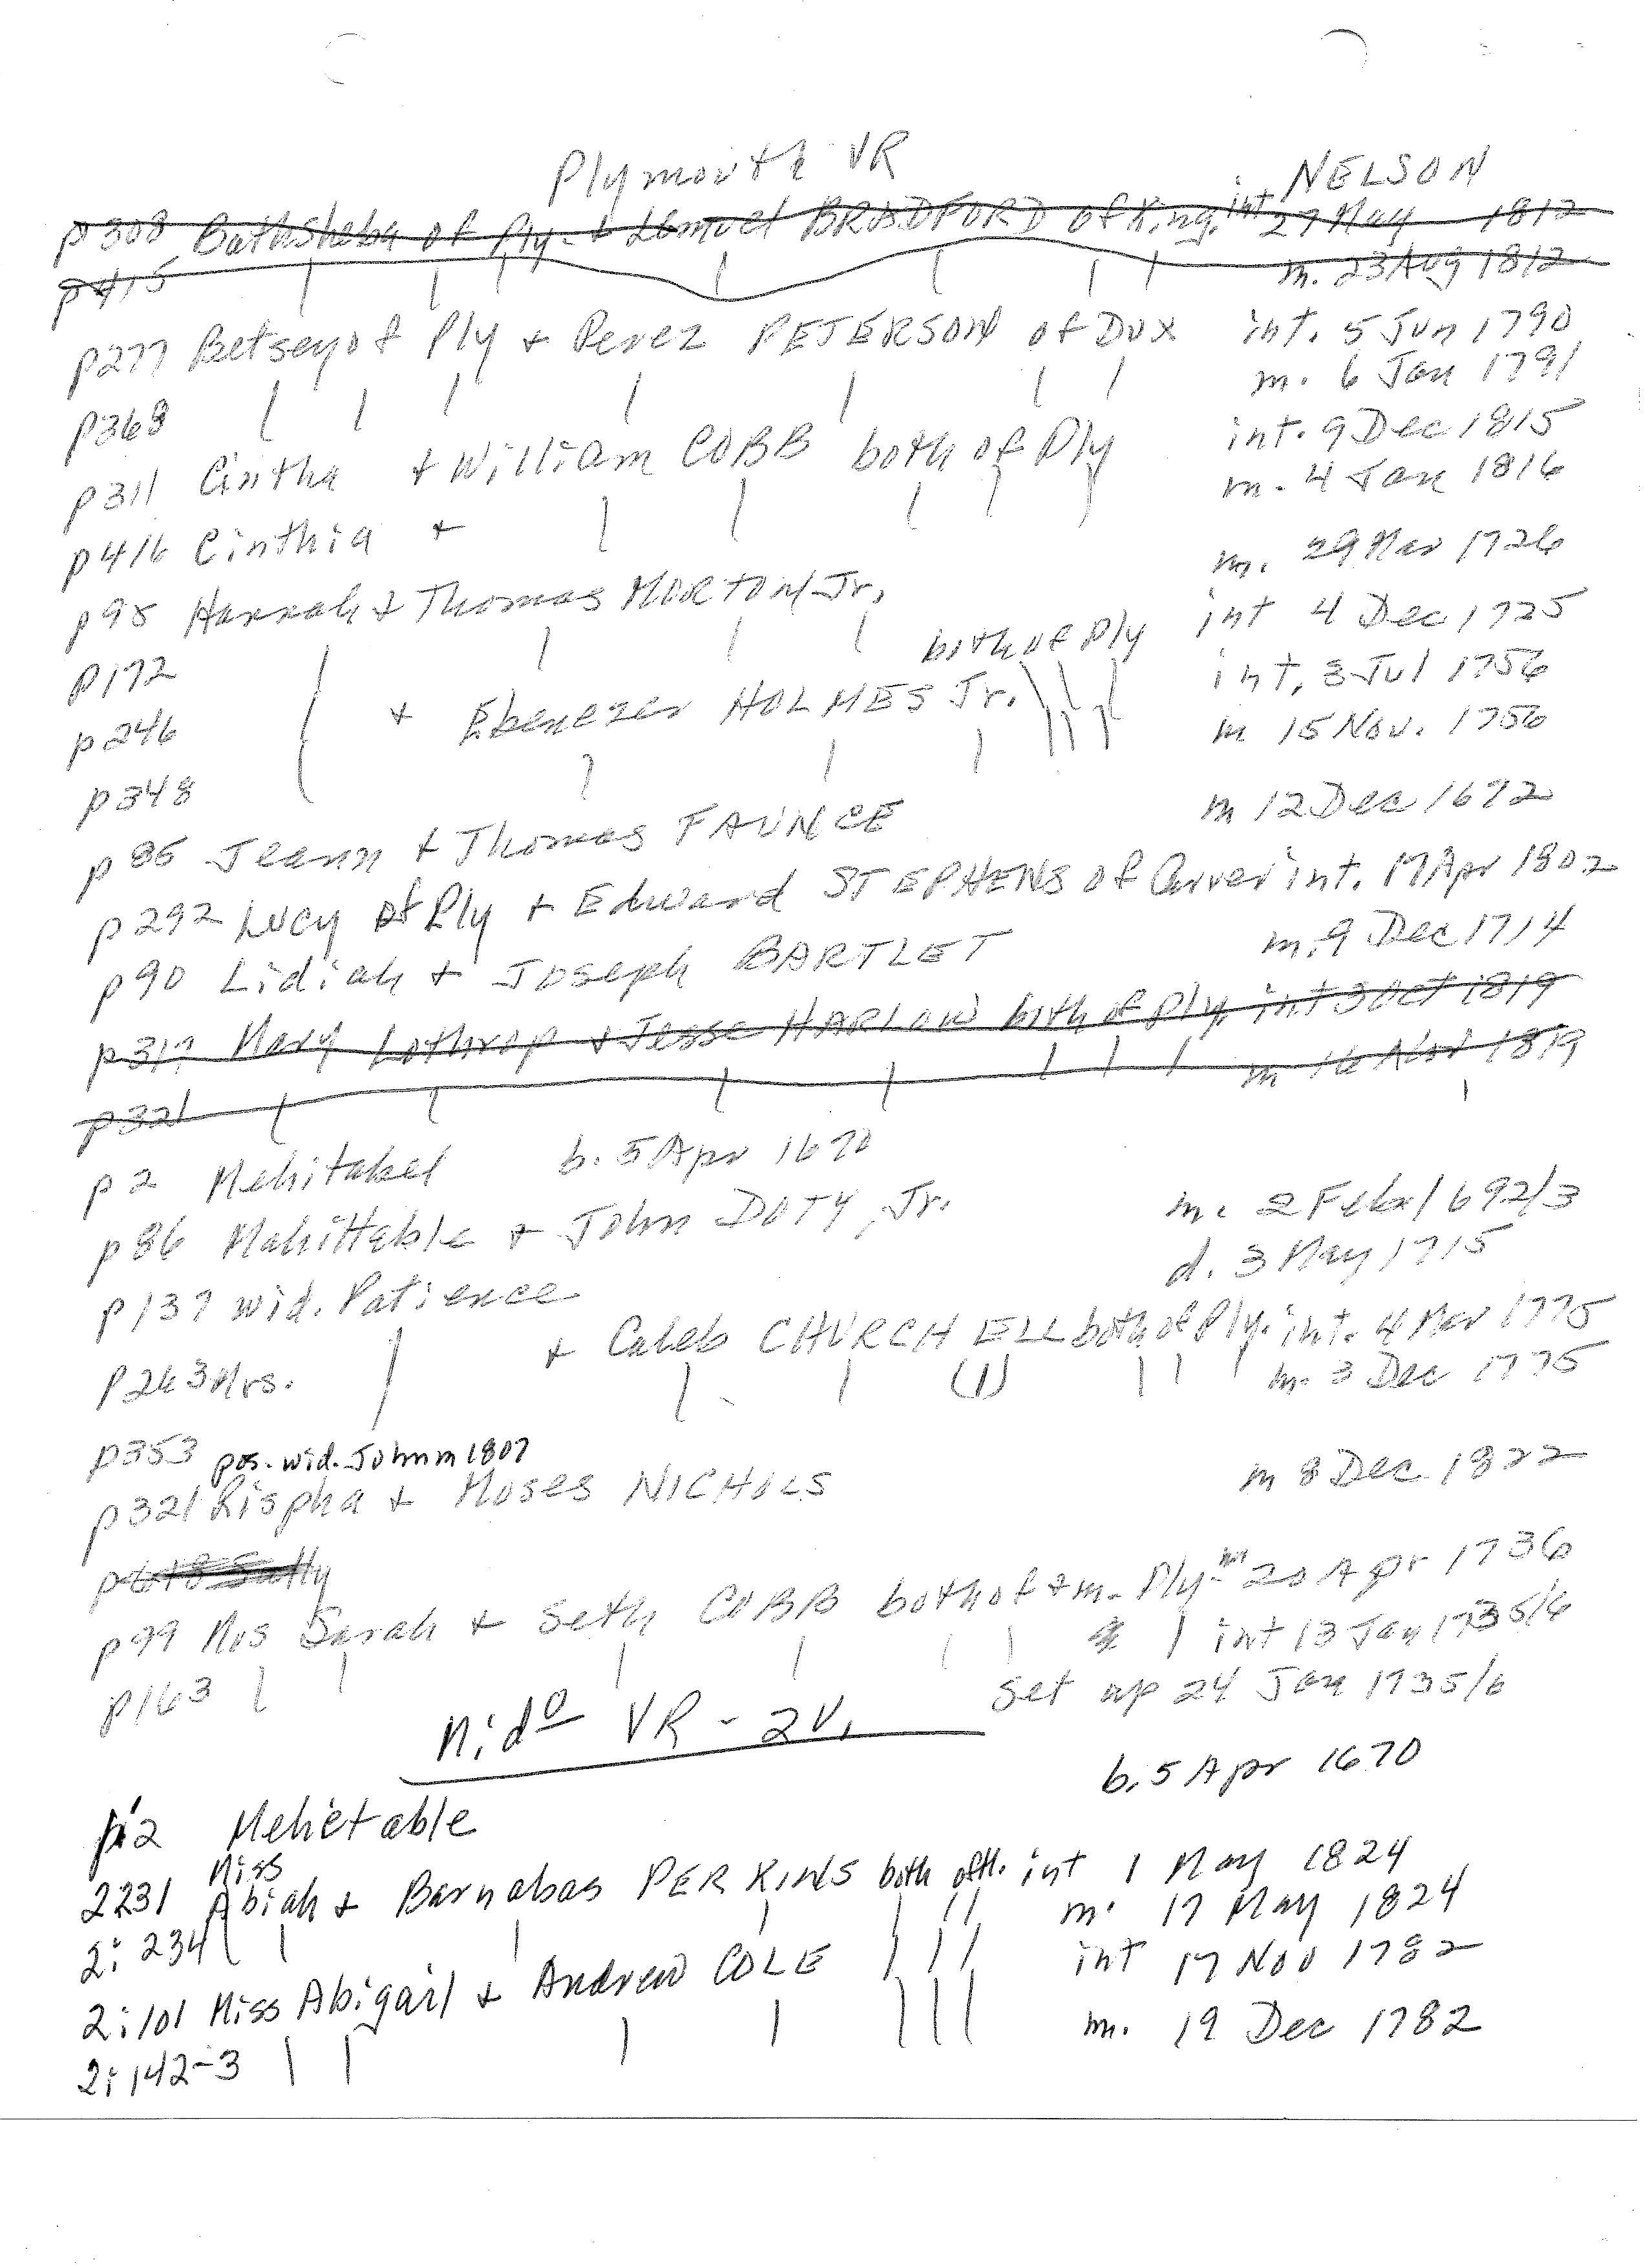 Plymouth VR NELSON
p308 Bathsheba of Ply. + Lemuel BRADFORD of King. int 27 May 1812
p415 | | | | | | | m. 23 Aug 1812
p277 Betsey of Ply + Perez PETERSON of Dux int. 5 Jun 1790
p368 | | | | | | | m. 6 Jan 1791
p311 Cintha + William COBB both of Ply int. 9 Dec 1815
p416 Cinthia + | | | | | m. 4 Jan 1816
p98 Hannah + Thomas MORTON Jr. m. 29 Mar 1726
p172 | | | | both of Ply int 4 Dec 1725
p246 | + Ebenezer HOLMES Jr. | | | int. 3 Jul 1756
p348 | | | | | | | m 15 Nov. 1756
p86 Jeann + Thomas FAUNCE m 12 Dec 1672
p292 Lucy of Ply + Edward STEPHENS of Carver int. 17 Apr 1802
p90 Lidiah + Joseph BARTLET m. 9 Dec 1714
p317 Mary Lothrop + Jesse HARLOW both of Ply. int 3 Oct 1819
p321 | | | | | | | m 16 Nov 1819
p2 Mehitabel b. 5 Apr 1670
p86 Mahittable + John DOTY, Jr. m. 2 Feb 1692/3
p137 wid. Patience d. 3 May 1715
p263 Mrs. | + Caleb CHURCHELL both of Ply. int. 4 Mar 1775
p353 | | (1) | | | m. 3 Dec 1775
pos. wid. John m 1807
p321 Rispha + Moses NICHOLS m 8 Dec 1822
Sally
p99 Mrs Sarah + Seth COBB both of + m. Ply 20 Apr 1736
p163 | | | | | | | int 13 Jan 1735/6
set up 24 Jan 1735/6
Mido VR - 2V.
p:2 Mehetable b. 5 Apr 1670
Miss
2231 Abiah + Barnabas PERKINS both int 1 May 1824
2:234 | | | | | | | m. 17 May 1824
2:101 Miss Abigail + Andrew COLE | | | int 17 Nov 1782
2:142-3 | | | | | | | m. 19 Dec 1782